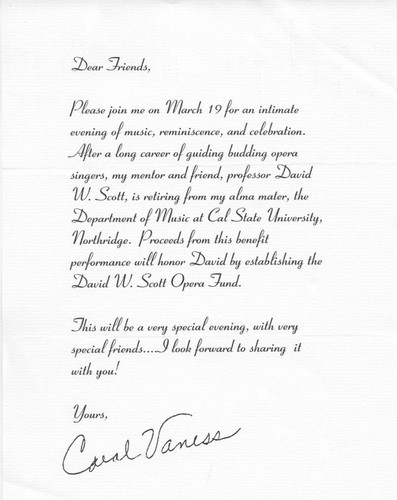 Dear Friends,
Please join me on March 19 for an intimate
evening of music, reminiscence, and celebration.
After a long career of guiding budding opera
singers, my mentor and friend, professor David
W. Scott, is retiring from my alma mater, the
Department of Music at Cal State University,
Northridge. Proceeds from this benefit
performance will honor David by establishing the
David W. Scott Opera Fund.
This will be a very special evening, with very
special friends....I look forward to sharing it
with you!
Yours,
Carol Vaness